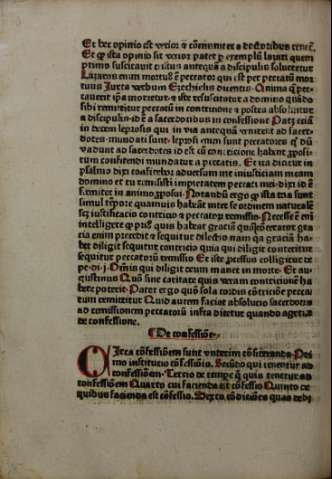 Et hec opinio est verior ⁊ cõmunior et a doctoribus tenet̃.
Et ꝙ ista opinio sit verior patet ꝑ exemplũ lazari quem
primo suscitauit xp̃us anteq̃ a discipulis solueretur
Lazarus enim mortuꝰ ẽ peccator qui est per peccatũ mor
tuus Iuxta verbum Ezechielis dicentis. Anima q̃ pec-
cauerit ip̃a morietur. ⁊ iste resuscitatur a domino quãdo
sibi remittitur peccatũ in contritione ⁊ postea absoluitur
a discipulis. id ẽ a sacerdotibus in confessione Patz etiã
in decem leprosis qui in via antequã venirent ad sacer-
dotes. mundati sunt. leprosi enim sunt peccatores q̃ dũ
vadunt ad sacerdotes id est cũ contritione habent ꝓposi-
tum confitendi mundatur a peccatis. Et ita dicitur in
psalmo dixi confitebor aduersum me iniusticiam meam
domino et tu remisisti impietatem peccati mei. dixi id ẽ
firmiter in animo ꝓposui. Notandũ ergo ꝙ ista tria sunt
simul tꝑore quamuis habeãt inter se ordinem naturalẽ
scz iustificacio contritio ⁊ peccatoꝝ remissio. Necesse ẽ em̃
intelligere ꝙ priꝰ quis habeat graciã quã cõteratur. gra
cia enim precedit ⁊ sequitur dilectio. nam qui graciã ha-
bet diligit sequitur contritio quia qui diligit conteritur
sequitur peccatorũ remissio Et iste ꝓcessus colligitur de
pe. di. j. Omnis qui diligit deum manet in morte. Et au-
gustinus Quõ sine caritate quis veram contritionẽ ha-
bere poterit. Patet ergo quõ sola cordis cõtricõe pecca-
tum remittitur Quid autem faciat absolutio sacerdotis
ad remissionem peccatorũ infra dicetur quando agetur
de confessione.
De confessiõe.
Circa cõfessiõem sunt videnda. Pri
mo institutio cõfessiõis. Secũdo qui tenentur ad
confessiõem. Tercio de tempe q̃ quis tenetur ad
confessiõem Quarto cui facienda est cõfessio Quinto de
quibus facienda est cõfessio. Sexto cõditiões quas debi